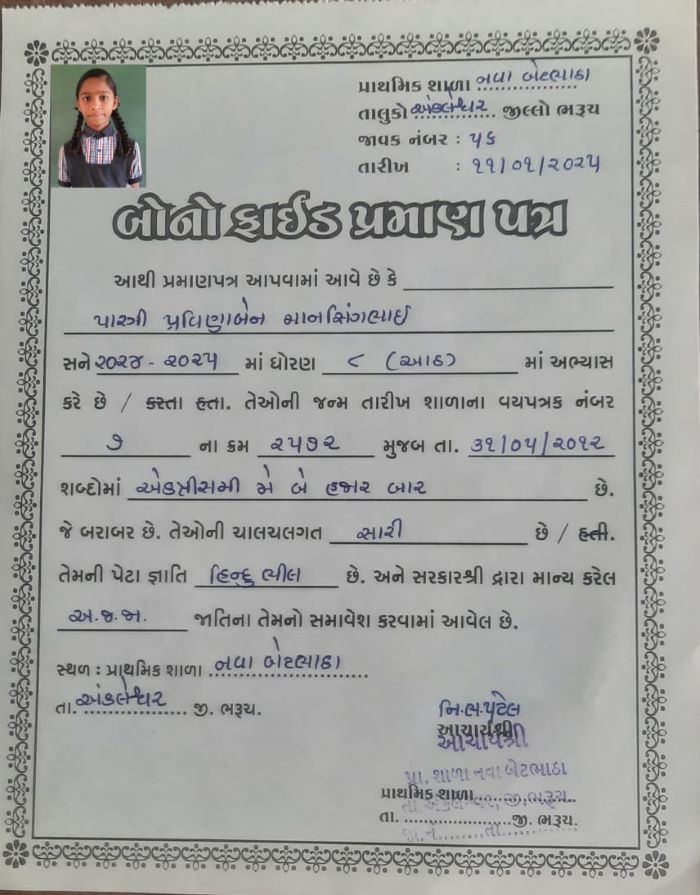 પ્રાથમિક શાળા નવા બેટભાઠા
તાલુકો અંકલેશ્વર જીલ્લો ભરૂચ
જાવક નંબર : ૫૬
તારીખ : ૧૧/૦૧/૨૦૨૫
બોનોફાઈડ પ્રમાણ પત્ર
આથી પ્રમાણપત્ર આપવામાં આવે છે કે
પાસ્ત્રી પ્રવિણાબેન માનસિંગભાઈ
સને ૨૦૨૪ - ૨૦૨૫ માં ધોરણ ૮ (આઠ) માં અભ્યાસ
કરે છે / કરતા હતા. તેઓની જન્મ તારીખ શાળાના વયપત્રક નંબર
૭ ના ક્રમ ૨૫૭૨ મુજબ તા. ૩૧/૦૫/૨૦૧૨
શબ્દોમાં એકત્રીસમી મે બે હજાર બાર છે.
જે બરાબર છે. તેઓની ચાલચલગત સારી છે / હતી.
તેમની પેટા જ્ઞાતિ હિન્દુ ભીલ છે. અને સરકારશ્રી દ્વારા માન્ય કરેલ
અ.જ.જા. જાતિના તેમનો સમાવેશ કરવામાં આવેલ છે.
સ્થળ : પ્રાથમિક શાળા નવા બેટભાઠા
તા. અંકલેશ્વર જી. ભરૂચ.
નિ.ભ.પટેલ
આચાર્યશ્રી
આચાર્યશ્રી
પ્રા. શાળા નવા બેટભાઠા
પ્રાથમિક શાળા
તા. જી. ભરૂચ.